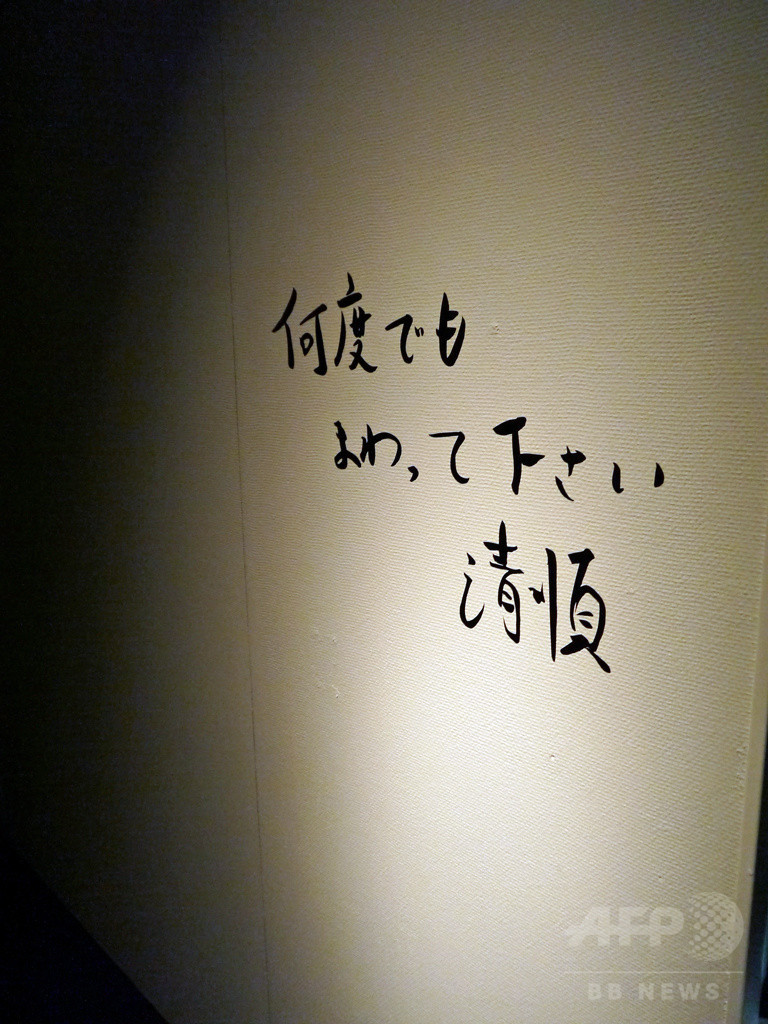 何度でも
まわって下さい
清順
AFP
BB NEWS